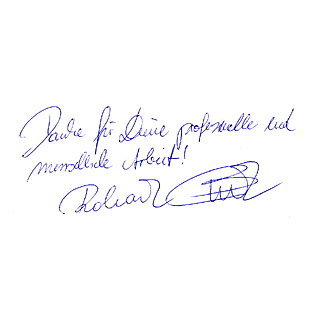 Danke für Deine professionelle und
menschliche Arbeit!
Richard